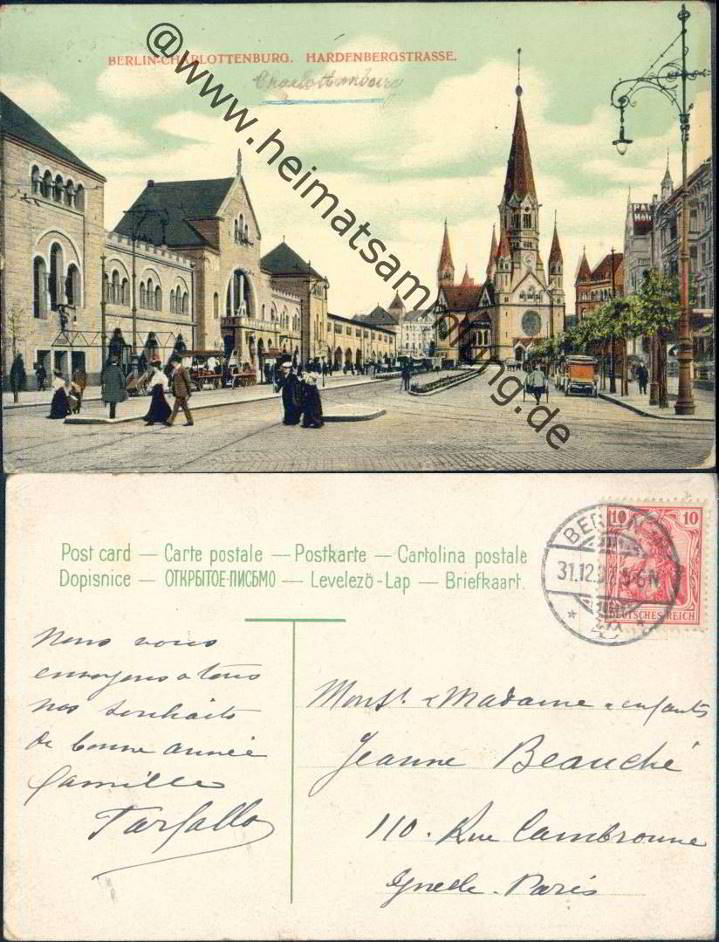 BERLIN-CHARLOTTENBURG. HARDENBERGSTRASSE.
Charlottenbourg
@www.heimatsammlung.de
Post card — Carte postale — Postkarte — Cartolina postale
Dopisnice — ОТКРЫТОЕ-ПИСЬМО — Levelező-Lap — Briefkaart.
BERLIN
31.12.
5-6N
10 10
DEUTSCHES REICH
Nous vous
envoyons a tous
nos souhaits
de bonne année
Camille
Farfallo
Monsr. e Madame e enfants
Jeanne Beauché
110. Rue Cambronne
Paris